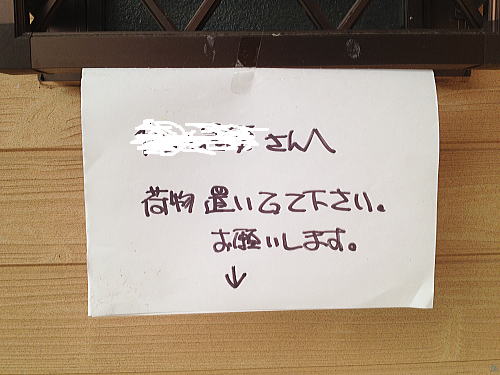 さんへ
荷物 置いてって下さい。
お願いします。
↓